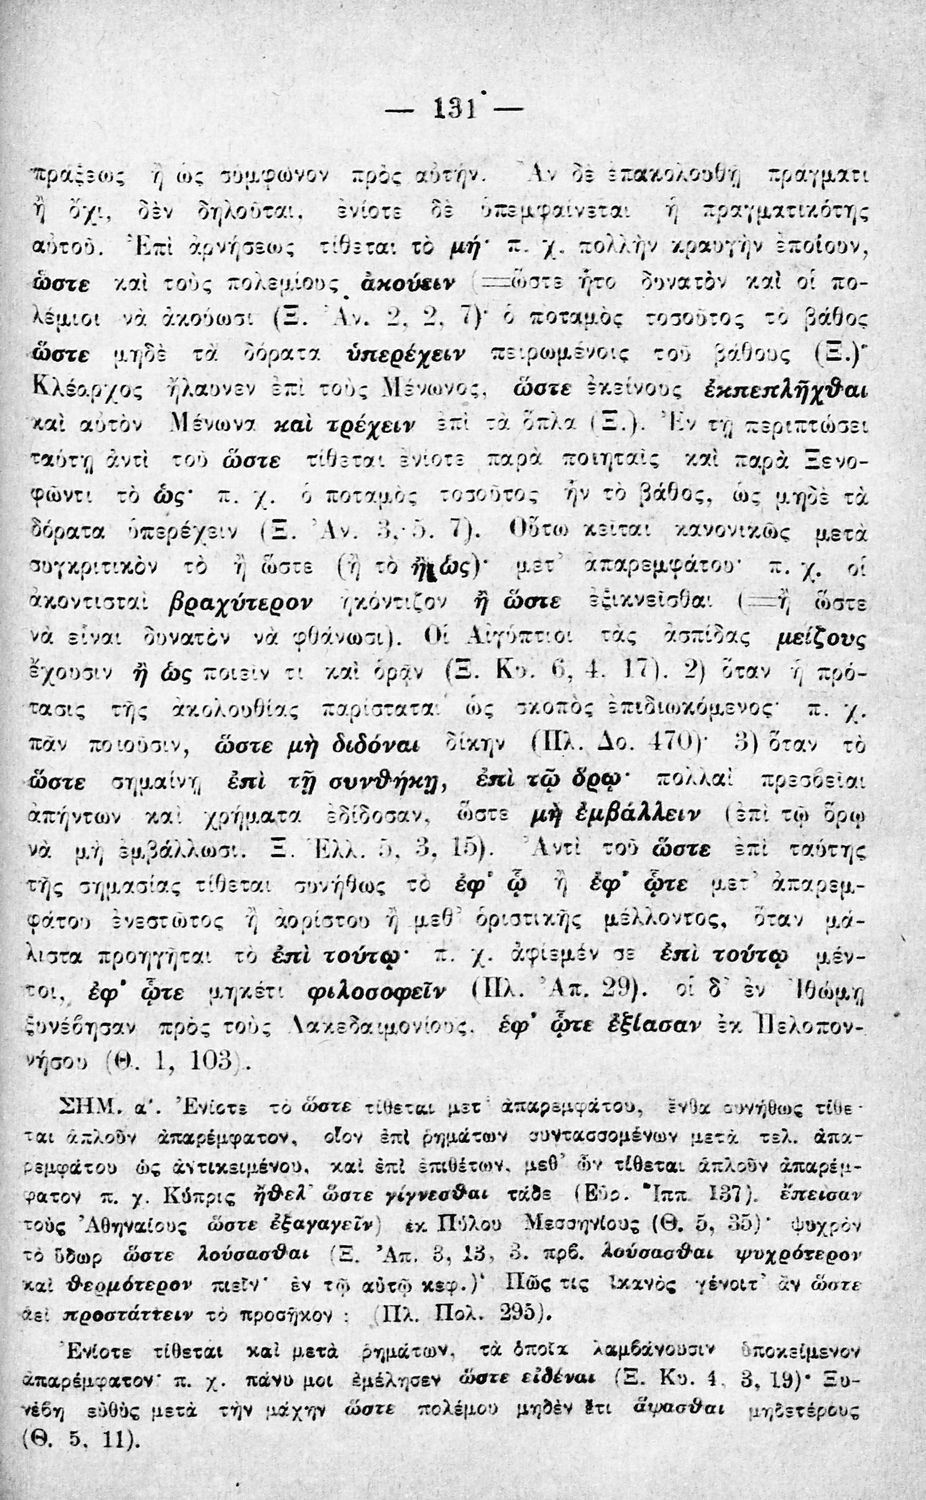 — 131 —
πράξεως ἢ ὡς σύμφωνον πρὸς αὐτήν. Ἂν δὲ ἐπακολουθῇ πράγματι
ἢ ὄχι, δὲν δηλοῦται, ἐνίοτε δὲ ὑπεμφαίνεται ἡ πραγματικότης
αὐτοῦ. Ἐπὶ ἀρνήσεως τίθεται τὸ μή· π. χ. πολλὴν κραυγὴν ἐποίουν,
ὥστε καὶ τοὺς πολεμίους ἀκούειν (=ὥστε ἦτο δυνατὸν καὶ οἱ πο-
λέμιοι νὰ ἀκούωσι (Ξ. Ἀν. 2, 2, 7)· ὁ ποταμὸς τοσοῦτος τὸ βάθος
ὥστε μηδὲ τὰ δόρατα ὑπερέχειν πειρωμένοις τοῦ βάθους (Ξ.)·
Κλέαρχος ἤλαυνεν ἐπὶ τοὺς Μένωνος, ὥστε ἐκείνους ἐκπεπλῆχθαι
καὶ αὐτὸν Μένωνα καὶ τρέχειν ἐπὶ τὰ ὅπλα (Ξ.). Ἐν τῇ περιπτώσει
ταύτῃ ἀντὶ τοῦ ὥστε τίθεται ἐνίοτε παρὰ ποιηταῖς καὶ παρὰ Ξενο-
φῶντι τὸ ὡς· π. χ. ὁ ποταμὸς τοσοῦτος ἦν τὸ βάθος, ὡς μηδὲ τὰ
δόρατα ὑπερέχειν (Ξ. Ἀν. 3, 5. 7). Οὕτω κεῖται κανονικῶς μετὰ
συγκριτικὸν τὸ ἢ ὥστε (ἢ τὸ ἢ ὡς)· μετ' ἀπαρεμφάτου· π. χ. οἱ
ἀκοντισταὶ βραχύτερον ἠκόντιζον ἢ ὥστε ἐξικνεῖσθαι (=ἢ ὥστε
νὰ εἶναι δυνατὸν νὰ φθάνωσι). Οἱ Αἰγύπτιοι τὰς ἀσπίδας μείζους
ἔχουσιν ἢ ὡς ποιεῖν τι καὶ ὁρᾶν (Ξ. Κυ. 6, 4. 17). 2) ὅταν ἡ πρό-
τασις τῆς ἀκολουθίας παρίσταται ὡς σκοπὸς ἐπιδιωκόμενος· π. χ.
πᾶν ποιοῦσιν, ὥστε μὴ διδόναι δίκην (Πλ. Δο. 470)· 3) ὅταν τὸ
ὥστε σημαίνῃ ἐπὶ τῇ συνθήκῃ, ἐπὶ τῷ ὅρῳ· πολλαὶ πρεσβεῖαι
ἀπήντων καὶ χρήματα ἐδίδοσαν, ὥστε μὴ ἐμβάλλειν (ἐπὶ τῷ ὅρῳ
νὰ μὴ ἐμβάλλωσι. Ξ. Ἑλλ. 5, 3, 15). Ἀντὶ τοῦ ὥστε ἐπὶ ταύτης
τῆς σημασίας τίθεται συνήθως τὸ ἐφ' ᾧ ἢ ἐφ' ᾧτε μετ' ἀπαρεμ-
φάτου ἐνεστῶτος ἢ ἀορίστου ἢ μεθ' ὁριστικῆς μέλλοντος, ὅταν μά-
λιστα προηγῆται τὸ ἐπὶ τούτῳ· π. χ. ἀφίεμέν σε ἐπὶ τούτῳ μέν-
τοι, ἐφ' ᾧτε μηκέτι φιλοσοφεῖν (Πλ. Ἀπ. 29). οἱ δ' ἐν Ἰθώμῃ
ξυνέβησαν πρὸς τοὺς Λακεδαιμονίους, ἐφ' ᾧτε ἐξίασαν ἐκ Πελοπον-
νήσου (Θ. 1, 103).
ΣΗΜ. α'. Ἐνίοτε τὸ ὥστε τίθεται μετ' ἀπαρεμφάτου, ἔνθα συνήθως τίθε-
ται ἁπλοῦν ἀπαρέμφατον, οἷον ἐπὶ ῥημάτων συντασσομένων μετὰ τελ. ἀπα-
ρεμφάτου ὡς ἀντικειμένου, καὶ ἐπὶ ἐπιθέτων, μεθ' ὧν τίθεται ἁπλοῦν ἀπαρέμ-
φατον π. χ. Κύπρις ἤθελ' ὥστε γίγνεσθαι τάδε (Εὐρ. Ἱππ 137). ἔπεισαν
τοὺς Ἀθηναίους ὥστε ἐξαγαγεῖν) ἐκ Πύλου Μεσσηνίους (Θ. 5, 35)· ψυχρὸν
τὸ ὕδωρ ὥστε λούσασθαι (Ξ. Ἀπ. 3, 13, 3. πρβ. λούσασθαι ψυχρότερον
καὶ θερμότερον πιεῖν· ἐν τῷ αὐτῷ κεφ.)· Πῶς τις ἱκανὸς γένοιτ' ἂν ὥστε
ἀεὶ προστάττειν τὸ προσῆκον ; (Πλ. Πολ. 295).
Ἐνίοτε τίθεται καὶ μετὰ ῥημάτων, τὰ ὁποῖα λαμβάνουσιν ὑποκείμενον
ἀπαρέμφατον· π. χ. πάνυ μοι ἐμέλησεν ὥστε εἰδέναι (Ξ. Κυ. 4, 3, 19)· Ξυ-
νέβη εὐθὺς μετὰ τὴν μάχην ὥστε πολέμου μηδὲν ἔτι ἅψασθαι μηδετέρους
(Θ. 5, 11).